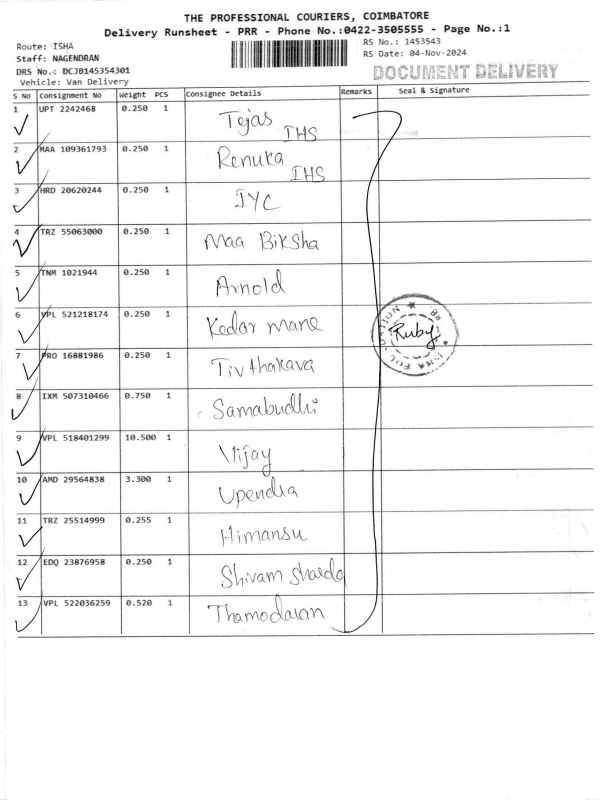 THE PROFESSIONAL COURIERS, COIMBATORE
Delivery Runsheet - PRR - Phone No.:0422-3505555 - Page No.:1
Route: ISHA
RS No.: 1453543
Staff: NAGENDRAN
RS Date: 04-Nov-2024
DRS No.: DCJB145354301
DOCUMENT DELIVERY
Vehicle: Van Delivery
S No Consignment No Weight PCS Consignee Details Remarks Seal & Signature
1 UPT 2242468 0.250 1 Tejas IHS
2 MAA 109361793 0.250 1 Renuka IHS
3 HRD 20620244 0.250 1 IYC
4 TRZ 55063000 0.250 1 Maa Biksha
5 TNM 1021944 0.250 1 Arnold
6 VPL 521218174 0.250 1 Kedar mane
Ruby
7 PRO 16881986 0.250 1 Tivthakava
8 IXM 507310466 0.750 1 Samabudhi
9 VPL 518401299 10.500 1 Vijay
10 AMD 29564838 3.300 1 Upendra
11 TRZ 25514999 0.255 1 Himansu
12 EDQ 23876958 0.250 1 Shivam sharda
13 VPL 522036259 0.520 1 Thamodaran